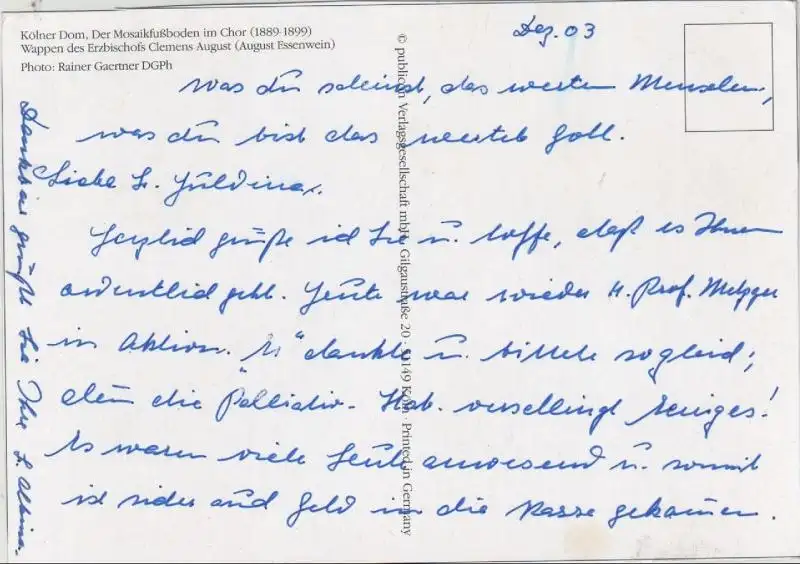 Kölner Dom, Der Mosaikfußboden im Chor (1889-1899)
Wappen des Erzbischofs Clemens August (August Essenwein)
Photo: Rainer Gaertner DGPh
Dez. 03
Was du scheinst, das werten Menschen,
was du bist das wertet Gott.
Liebe Sr.
Herzlich grüße ich Sie u. hoffe, daß es Ihnen
ordentlich geht. Heute war wieder H. Prof. Metzger
in Aktion. "Er" dankte u. bittete sogleich;
denn die "Palliativ- Stat. verschlingt Einiges!
Es waren viele Leute anwesend u. somit
ist sicher auch Geld in die Kasse gekommen.
Dankbar grüßt Sie Ihre S. Albina.
© publicon Verlagsgesellschaft mbH · Gilgaustraße 20 · 51149 Köln · Printed in Germany